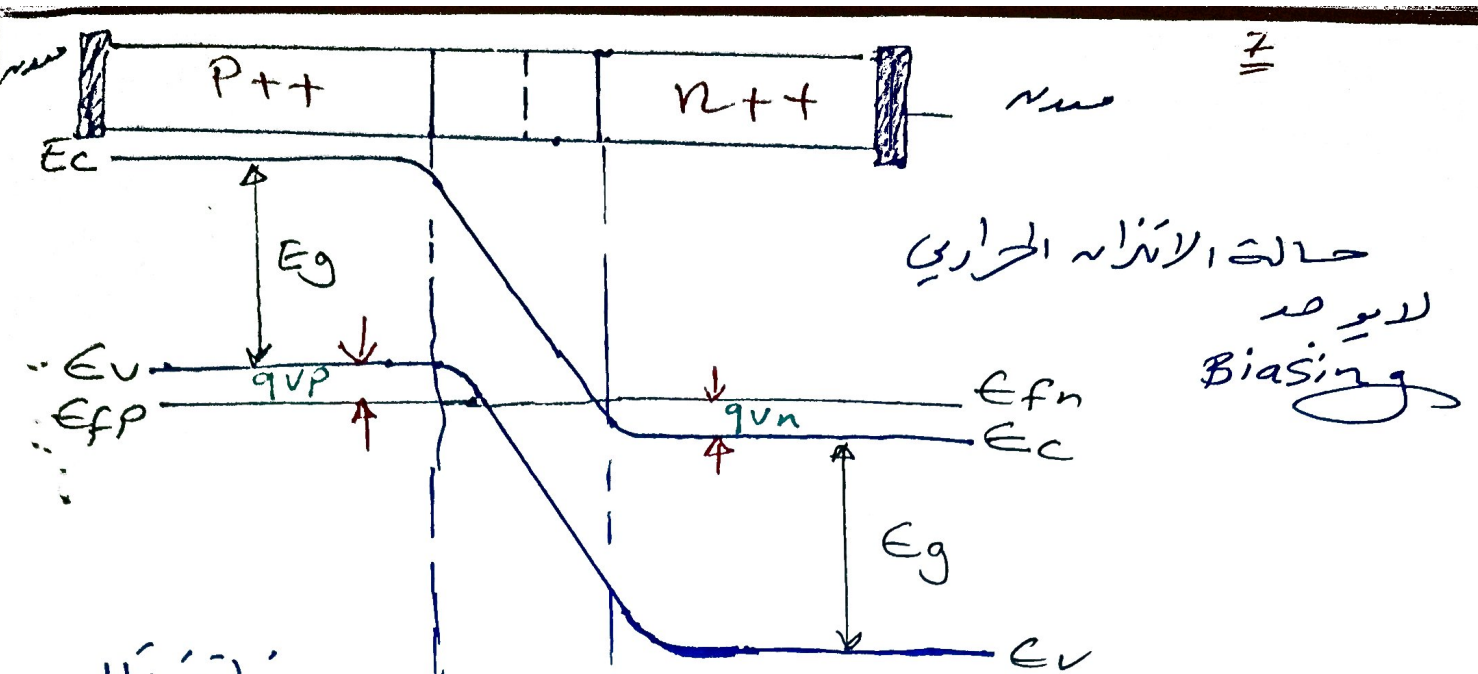 7
معدن
P++
n++
معدن
Ec
Eg
حالة الاتزان الحراري
لا يوجد
Biasing
Ev
qvp
Efp
Efn
qvn
Ec
Eg
Ev